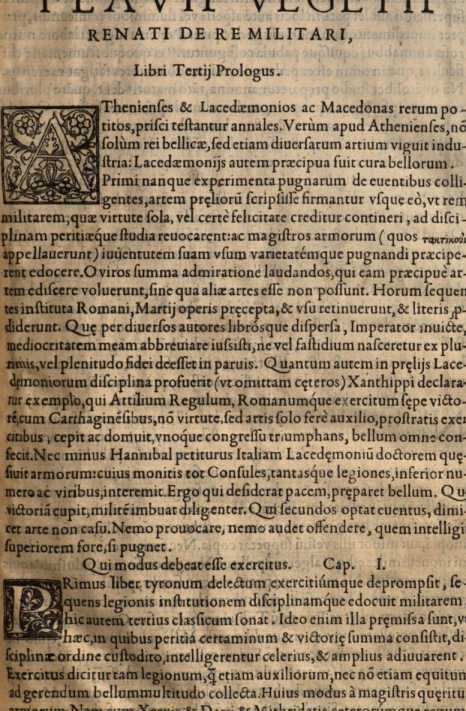 FLAVII VEGETII
RENATI DE RE MILITARI,
Libri Tertij Prologus.
AThenienses & Lacedæmonios ac Macedonas rerum po-
titos, prisci testantur annales. Verùm apud Athenienses, nō
solùm rei bellicæ, sed etiam diuersarum artium viguit indu-
stria: Lacedæmonijs autem præcipua fuit cura bellorum.
Primi nanque experimenta pugnarum de euentibus colli-
gentes, artem pręliorũ scripsisse firmantur vsque eò, vt rem
militarem, quæ virtute sola, vel certè felicitate creditur contineri, ad disci-
plinam peritiæque studia reuocarent: ac magistros armorum (quos τακτικοὺς
appellauerunt) iuuentutem suam vsum varietatémque pugnandi præcipe-
rent edocere. O viros summa admiratione laudandos, qui eam præcipuè ar-
tem ediscere voluerunt, sine qua aliæ artes esse non possunt. Horum sequen
tes instituta Romani, Martij operis pręcepta, & vsu retinuerunt, & literis ꝓ-
diderunt. Quę per diuersos autores librósque dispersa, Imperator inuicte,
mediocritatem meam abbreuiare iussisti, ne vel fastidium nasceretur ex plu-
rimis, vel plenitudo fidei deesset in paruis. Quantum autem in pręlijs Lace-
dęmoniorum disciplina profuerit (vt omittam cęteros) Xanthippi declara-
tur exemplo, qui Attilium Regulum, Romanumque exercitum sępe victo-
rē, cum Carthaginēsibus, nō virtute, sed artis solo ferè auxilio, prostratis exer
citibus, cepit ac domuit, vnoque congressu triumphans, bellum omne con-
fecit. Nec minus Hannibal petiturus Italiam Lacedęmoniū doctorem quę-
siuit armorum: cuius monitis tot Consules, tantasque legiones, inferior nu-
mero ac viribus, interemit. Ergo qui desiderat pacem, pręparet bellum. Qui
victoriā cupit, militē imbuat diligenter. Qui secundos optat euentus, dimi-
cet arte non casu. Nemo prouocare, nemo audet offendere, quem intelligi
superiorem fore, si pugnet.
Qui modus debeat esse exercitus. Cap. I.
PRimus liber tyronum delectum exercitiúmque deprompsit, se-
quens legionis institutionem disciplinamque edocuit militarem
hic autem tertius classicum sonat. Ideo enim illa pręmissa sunt, vt
hæc, in quibus peritia certaminum & victorię summa consistit, di-
sciplinæ ordine custodito, intelligerentur celerius, & amplius adiuuarent.
Exercitus dicitur tam legionum, q̃ etiam auxiliorum, nec nō etiam equitum
ad gerendum bellum multitudo collecta. Huius modus à magistris queritu